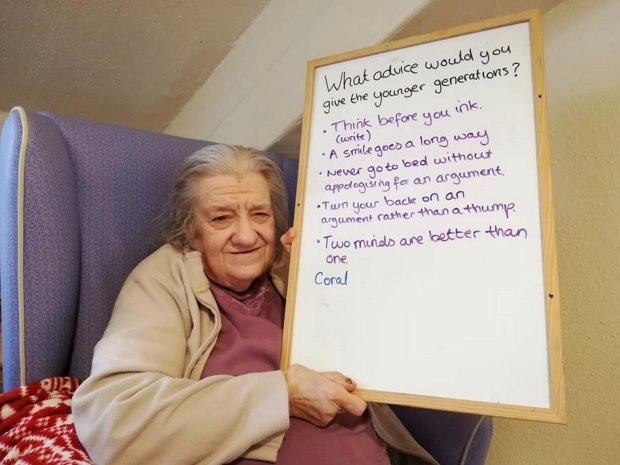 What advice would you
give the younger generations?
• Think before you ink.
(write)
• A smile goes a long way
• Never go to bed without
appologising for an argument.
• Turn your back on an
argument rather than a thump.
• Two minds are better than
one
Coral